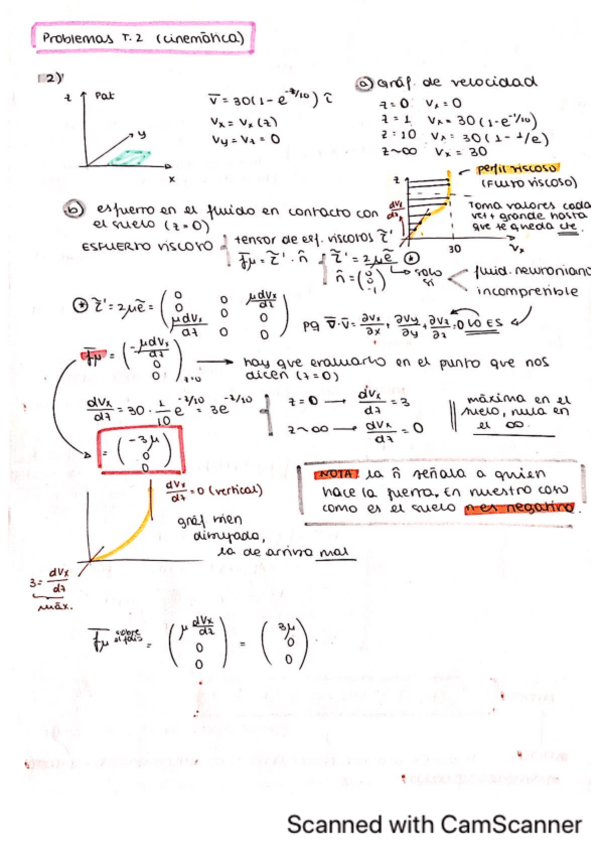 Problemas T.2 (cinemática)
2)
z Pat y x
v̄ = 30(1-e^-z/10) î
Vx = Vx(z)
Vy = Vz = 0
a) Gráf. de velocidad
z=0 Vx=0
z=1 Vx=30(1-e^-1/10)
z=10 Vx=30(1-1/e)
z~∞ Vx=30
perfil viscoso
(Flujo viscoso)
z dVx/dz 30 Vx
Toma valores cada
vez + grande hasta
que se queda cte.
b) esfuerzo en el fluido en contacto con
el suelo (z=0)
ESFUERZO VISCOSO { tensor de esf. viscosos τ̃'
f̄μ = τ̃' · n̂ { τ̃' = 2μẽ ⊛
n̂ = (0 0 -1)
→ solo si < fluid. newroniano
incomprerible
⊛ τ̃' = 2μẽ = (0 0 μdVx/dz
0 0 0
μdVx/dz 0 0)
pq ∇̄·v̄ = ∂Vx/∂x + ∂Vy/∂y + ∂Vz/∂z = 0 LO ES
f̄μ = (-μdVx/dz 0 0) z=0 → hay que evaluarlo en el punto que nos
dicen (z=0)
dVx/dz = 30 · 1/10 e^-z/10 = 3e^-z/10 { z=0 → dVx/dz = 3
z~∞ → dVx/dz = 0
máxima en el
suelo, nula en
el ∞.
= (-3μ 0 0)
NOTA: la n̂ señala a quien
hace la fuerza, En nuestro caso
como es el suelo n es negativo.
dVx/dz = 0 (vertical)
gráf bien
dibujada,
la de arriba mal
3 = dVx/dz
máx.
f̄μ sobre = (μ dVx/dz 0 0) = (3μ 0 0)
Scanned with CamScanner